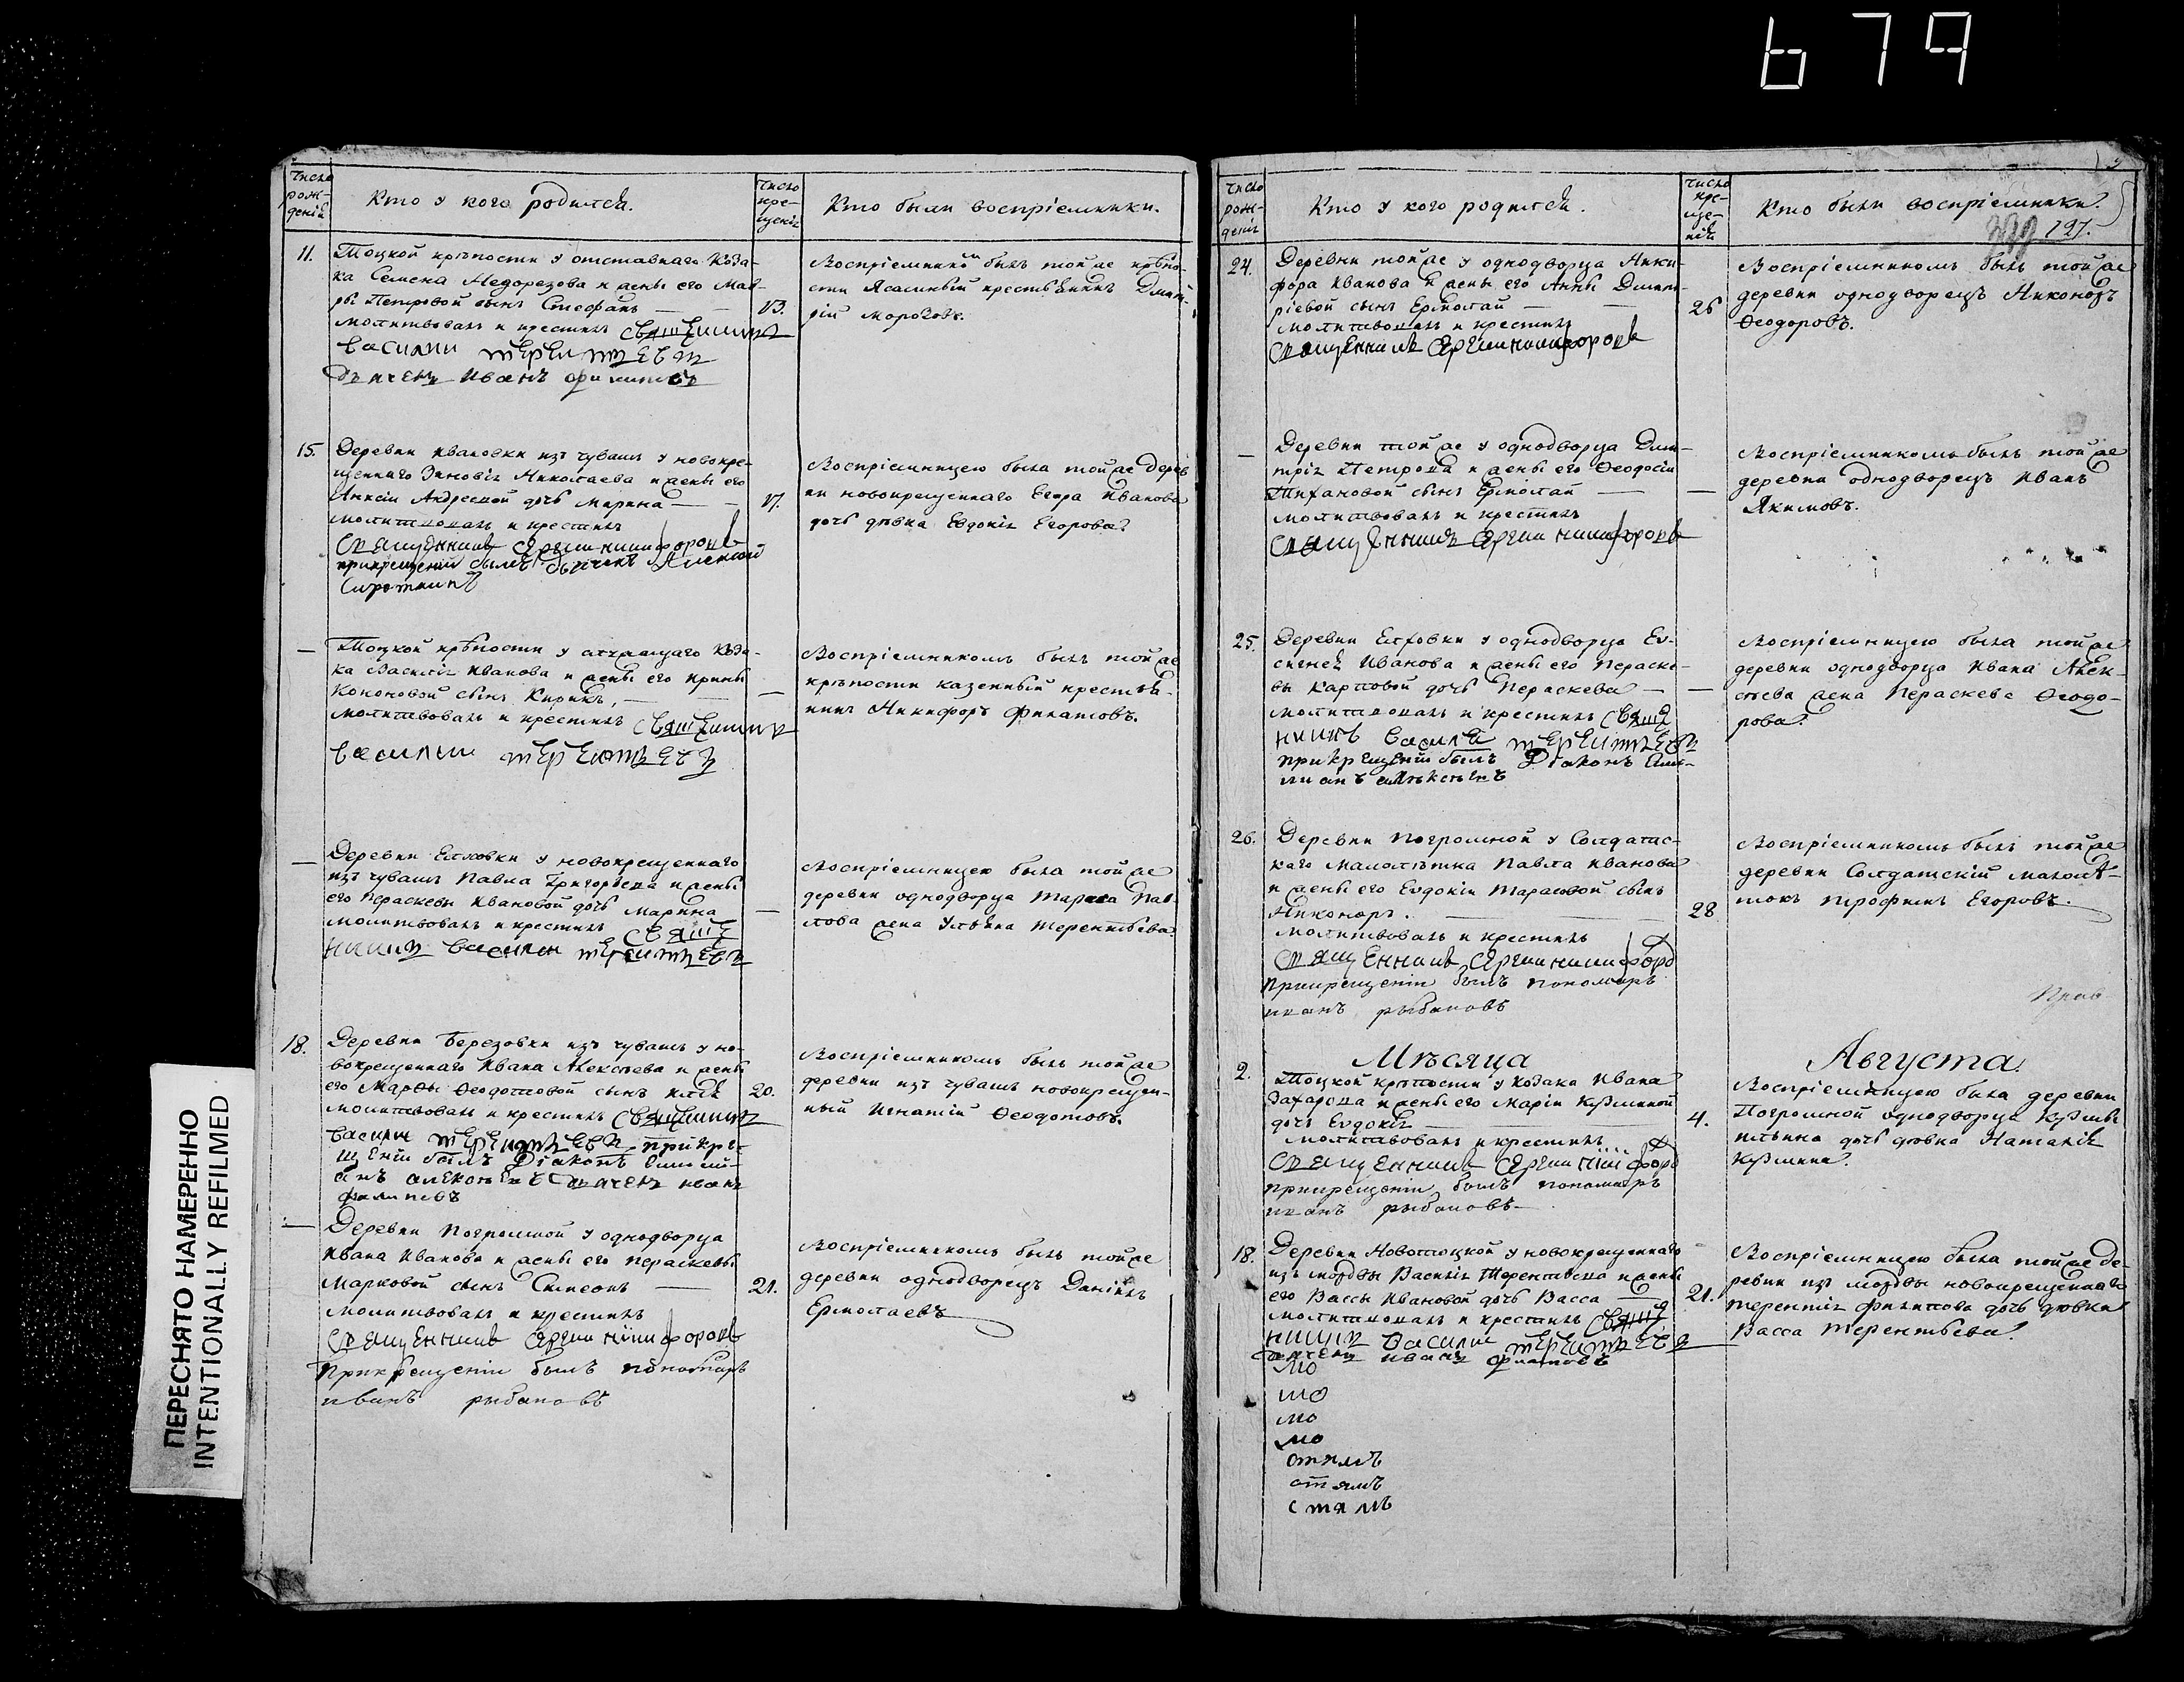 679
Число рож-дений
Кто у кого родился.
Число кре-щенія
Кто были воспріемники.
11.
Тоцкой крѣпости у отставнаго Каза-
ка Семена Недорезова и жены его Мав-
ры Петровой сынъ Стефанъ
молитвовалъ и крестилъ священникъ
василии терентьевъ
дьячекъ иванъ филиповъ
13.
Воспріемникомъ былъ той же крѣпо-
сти Ясашный крестьянинъ Димит-
рій Морозовъ.
15.
Деревни Ивановки изъ чувашъ у новокре-
щеннаго Зиновія Николаева и жены его
Андреевой дочь Марина
молитвовалъ и крестилъ
священникъ сергии никифоровъ
прикрещении былъ дьячекъ Алексей
Сироткинъ
17.
Воспріемницею была той же дерев
ни новокрещеннаго Егора Иванова
дочь девка Евдокія Егорова.
—
Тоцкой крѣпости у Каза-
ка Василія Иванова и жены его Ирины
Кононовой сынъ Кирикъ,
молитвовалъ и крестилъ священникъ
василии терентьевъ
—
Воспріемникомъ былъ той же
крѣпости казенный крестья-
нинъ Никифоръ Филатовъ.
—
Деревни Елховки у новокрещеннаго
изъ чувашъ Павла Григорьева и жены
его Пераскевы Ивановой дочь Марина
молитвовалъ и крестилъ свяще
нникъ василии терентьевъ
—
Воспріемницею была той же
деревни однодворца Тараса Пав-
лова жена Ульяна Терентьева.
18.
Деревни Березовки изъ чувашъ у но-
вокрещеннаго Ивана Алексѣева и жены
его Марѳы Ѳеодотовой сынъ Илія
молитвовалъ и крестилъ священникъ
василии терентьевъ прикре-
щении былъ Діаконъ Емели-
анъ алексѣевъ дьячекъ иванъ
филиповъ
20.
Воспріемникомъ былъ той же
деревни изъ чувашъ новокрещен-
ный Игнатій Ѳеодотовъ.
—
Деревни Погромной у однодворца
Ивана Иванова и жены его Пераскевы
Марковой сынъ Симеонъ
молитвовалъ и крестилъ
священникъ сергии никифоровъ
Прикрещении былъ пономарь
иванъ рыбаковъ
21.
Воспріемникомъ былъ той же
деревни однодворецъ Даніилъ
Ермолаевъ
Число рож-денія
Кто у кого родился.
Число кре-ще-нія
Кто были воспріемники.
197.
24.
Деревни той же у однодворца Ники-
фора Иванова и жены его Анны Димит-
ріевой сынъ Ермолай
молитвовалъ и крестилъ
священникъ сергии никифоровъ
26
Воспріемникомъ былъ той же
деревни однодворецъ Никоноръ
Ѳеодоровъ.
—
Деревни той же у однодворца Дми-
трія Петрова и жены его Ѳеодосіи
Тихановой сынъ Ермолай
молитвовалъ и крестилъ
священникъ сергии никифоровъ
—
Воспріемникомъ былъ той же
деревни однодворецъ Иванъ
Якимовъ.
25.
Деревни Елховки у однодворца Ев-
сигнея Иванова и жены его Пераске-
вы Карповой дочь Пераскева
молитвовалъ и крестилъ свяще
нникъ василеи терентьевъ
прикрещении былъ Діаконъ Еме-
лианъ алексѣевъ
—
Воспріемницею была той же
деревни однодворца Ивана Алек-
сѣева жена Пераскева Ѳеодо-
рова.
26.
Деревни Погромной у Солдатс-
каго малолѣтка Павла Иванова
и жены его Евдокіи Тарасовой сынъ
Никоноръ.
молитвовалъ и крестилъ
священникъ сергии никифоровъ
Прикрещении былъ пономарь
иванъ рыбаковъ
28
Воспріемникомъ былъ той же
деревни Солдатскій малолѣ-
токъ Трофимъ Егоровъ.
Мѣсяца Августа
2.
Тоцкой крѣпости у козака Ивана
Захарова и жены его Маріи Кузминой
дочь Евдокія
молитвовалъ и крестилъ
священникъ сергии никифоровъ
прикрещении былъ пономарь
иванъ рыбаковъ
4.
Воспріемницею была деревни
Погромной однодворца Кузмы
Ильина дочь девка Наталія
Кузмина.
18.
Деревни Новотоцкой у новокрещеннаго
изъ мордвы Василія Терентьева и жены
его Вассы Ивановой дочь Васса
молитвовалъ и крестилъ свяще
нникъ василии терентьевъ
дьячекъ иванъ филиповъ
21.
Воспріемницею была той же де-
ревни изъ мордвы новокрещеннаго
Терентія Филипова дочь девка
Васса Терентьева.
мо
мо
мо
мо
стямъ
стямъ
стямъ
ПЕРЕСНЯТО НАМЕРЕННО
INTENTIONALLY REFILMED